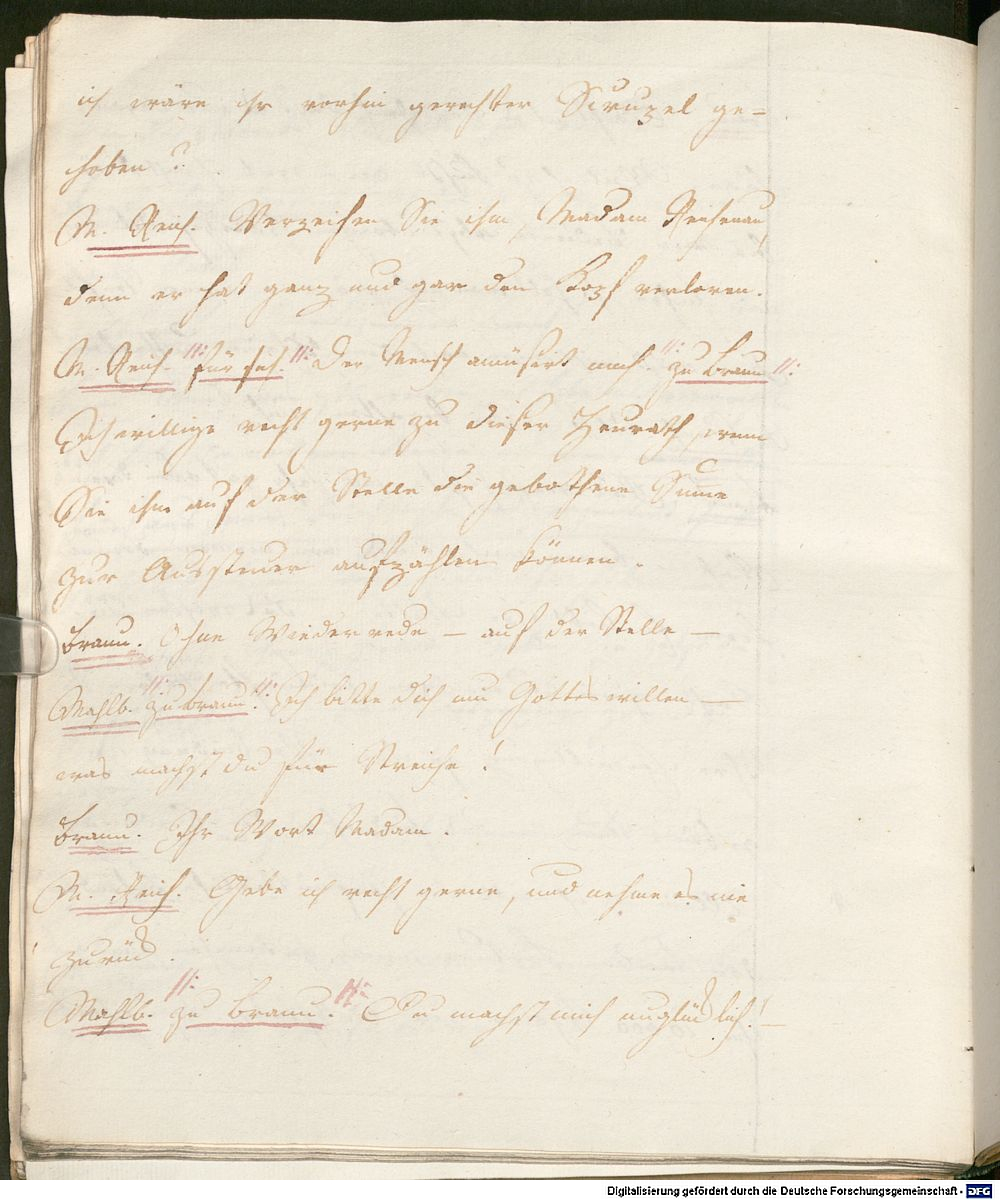 ich wäre ihr vorhin gerechter Scrupel ge=
hoben?
M. Reich. Verzeihen Sie ihm, Madam Reichenau,
denn er hat ganz und gar den Kopf verloren.
M. Reich. //: für sich. //: Der Mensch amüsirt mich. //: zu Braun //:
Ich willige recht gerne zu dieser Heurath, wenn
Sie ihm auf der Stelle die gebothene Summe
zur Aussteuer aufzählen können.
Braun. Ohne Wiederrede – auf der Stelle –
Mahlb. //: zu Braun //: Ich bitte dich um Gottes willen –
was machst du für Streiche!
Braun. Ihr Wort Madam.
M. Reich. Gebe ich recht gerne, und nehme es nie
zurück.
Mahlb. //: zu Braun. //: Du machst mich unglücklich! –
Digitalisierung gefördert durch die Deutsche Forschungsgemeinschaft - DFG